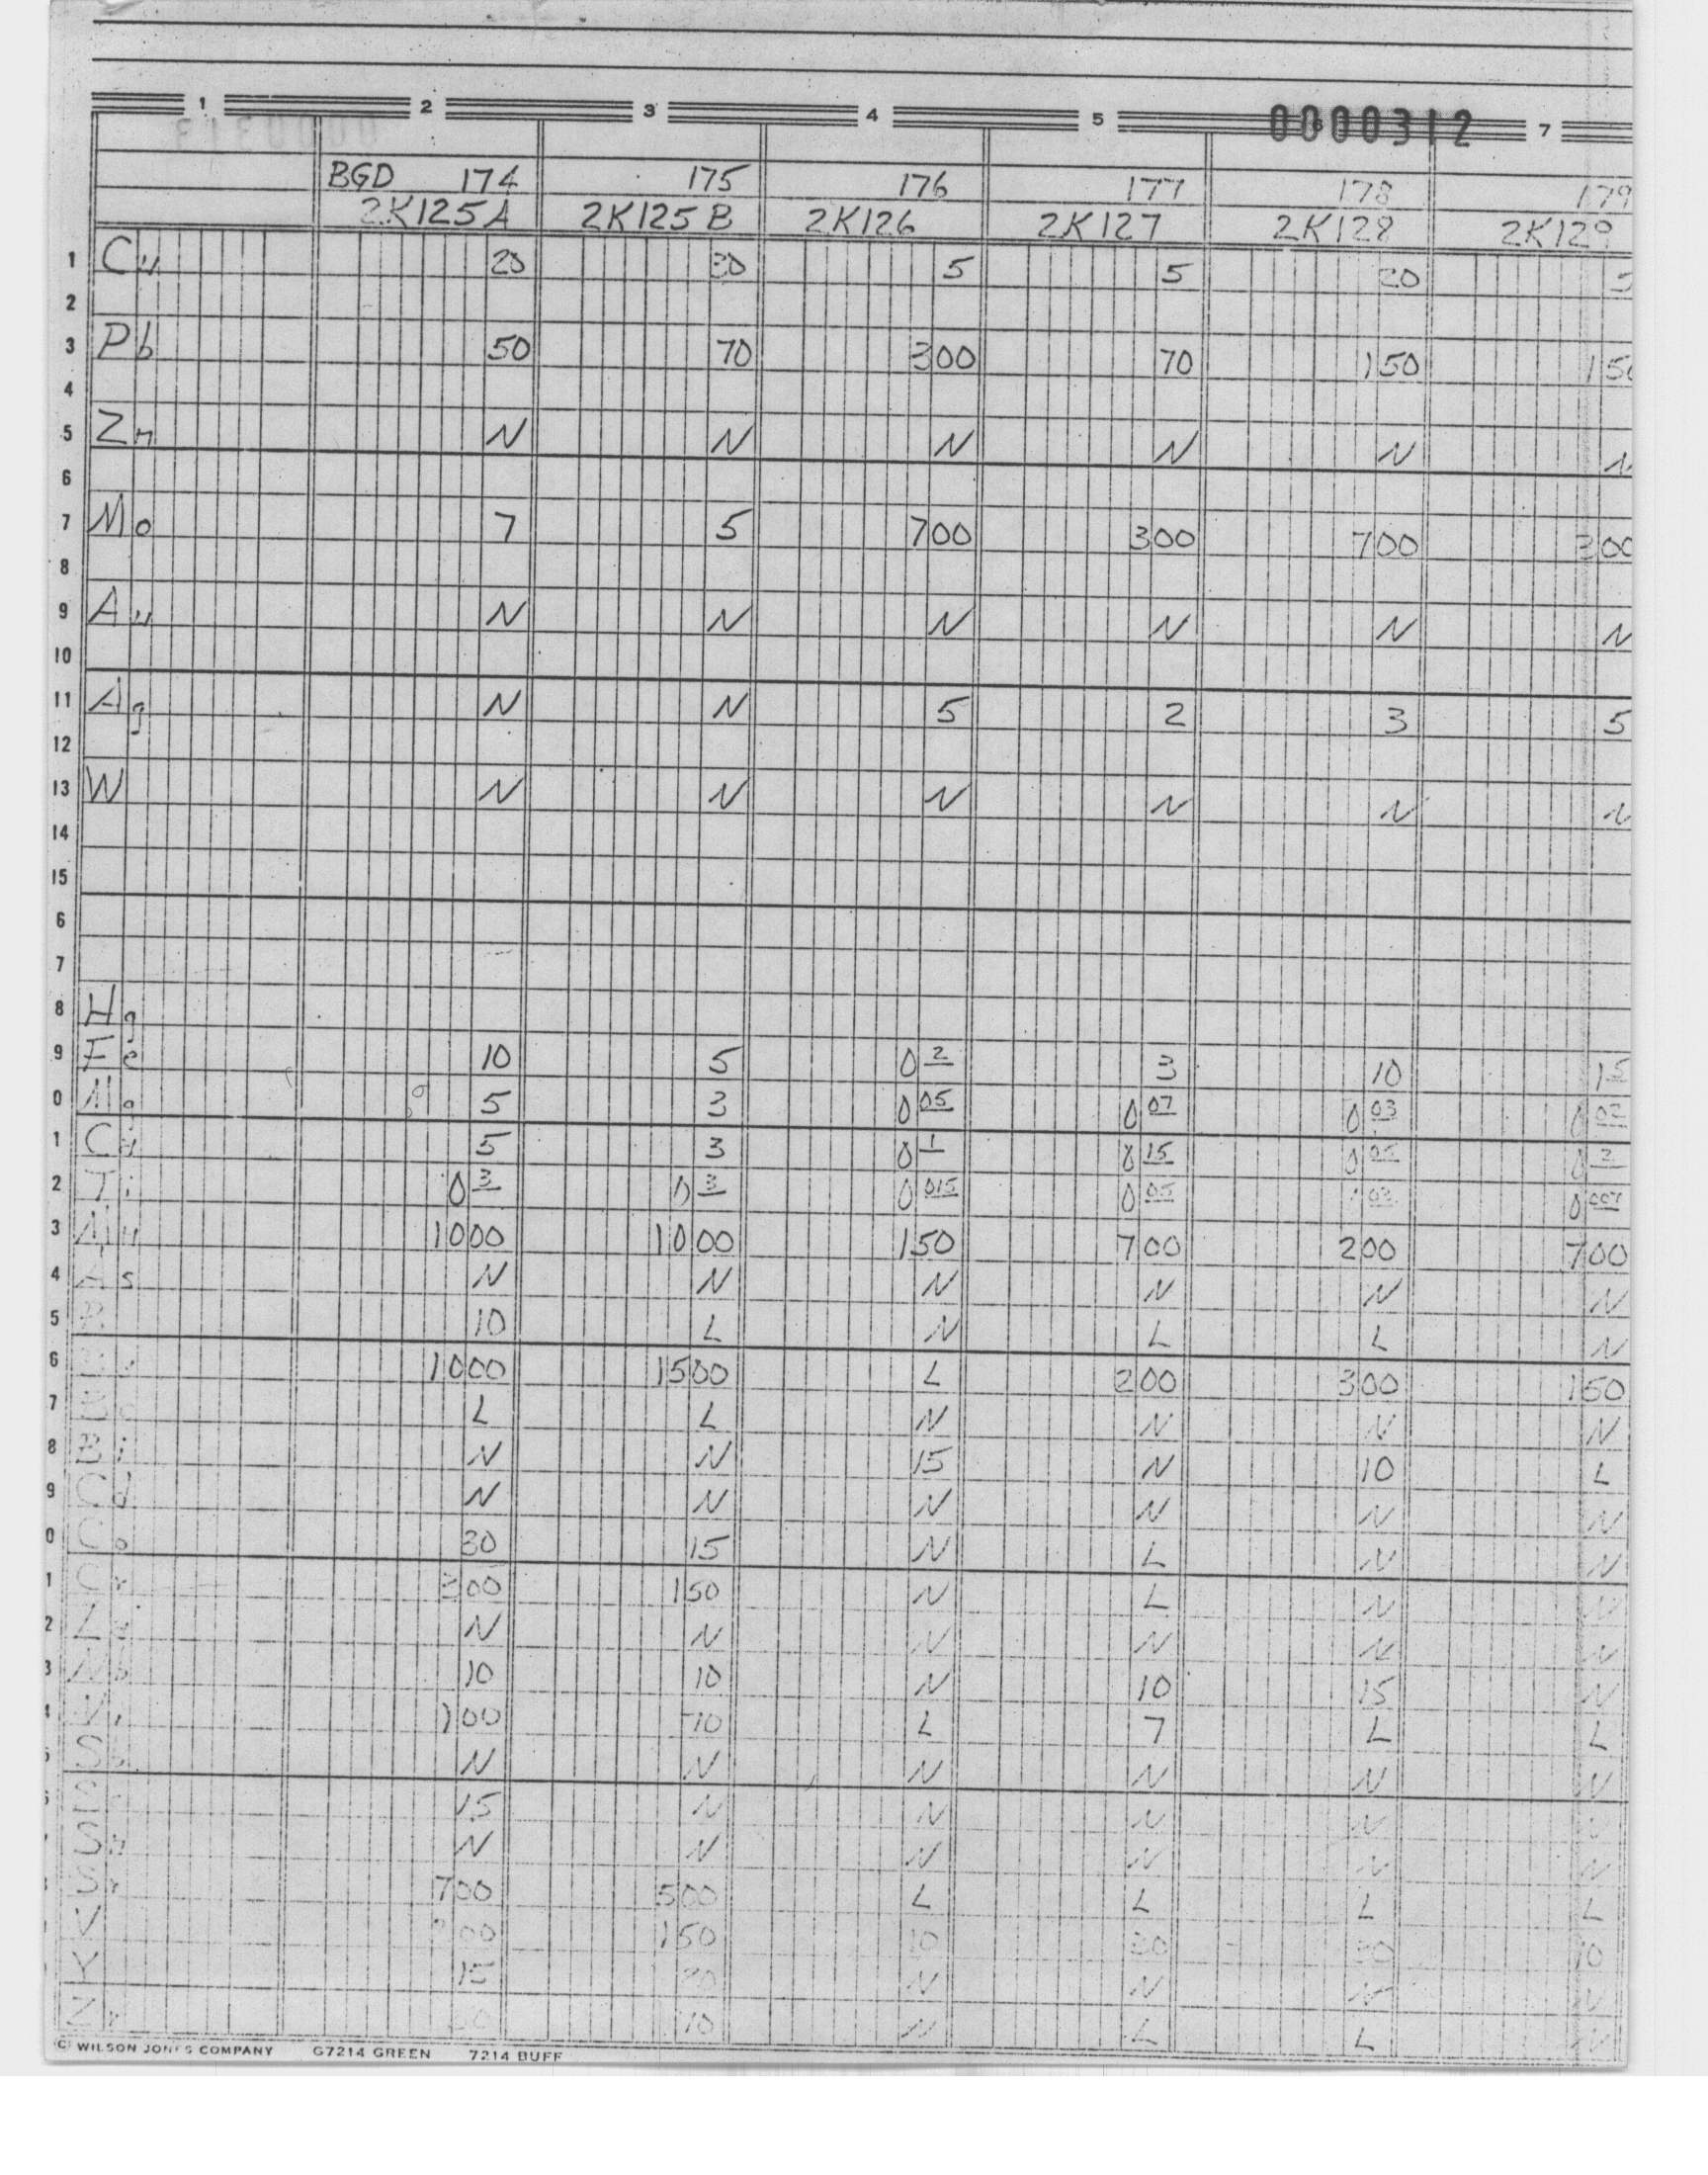 1 2 3 4 5 0000312 7
BGD 174 175 176 177 178 179
2K125A 2K125B 2K126 2K127 2K128 2K129
1 Cu 20 30 5 5 20
2
3 Pb 50 70 300 70 150 150
4
5 Zn N N N N N N
6
7 Mo 7 5 700 300 700 300
8
9 Au N N N N N N
10
11 Ag N N 5 2 3 5
12
13 W N N N N N N
14
15
6
7
8 Hg
9 Fe 10 5 0 2 3 10
0 Mg 5 3 0 05 0 07 0 03 0 02
1 Ca 5 3 0 1 0 15 0 05 0 2
2 Ti 0 3 0 3 0 015 0 05 03 0 007
3 Mn 1000 1000 150 700 200 700
4 As N N N N N N
5 B 10 L N L L N
6 1000 1500 L 200 300 150
7 Be L L N N N N
8 Bi N N 15 N 10 L
9 Cd N N N N N N
0 Co 30 15 N L N N
1 Cr 150 N L N N
2 La N N N N N N
3 Nb 10 10 N 10 15 N
4 Ni 100 70 L 7 L L
5 Sb N N N N N N
15 N N N N N
Sn N N N N N N
Sr 700 500 L L L L
V 150 10 30 10
Y 15 N N N N
Zr 70 N L L N
(C) WILSON JONES COMPANY G7214 GREEN 7214 BUFF